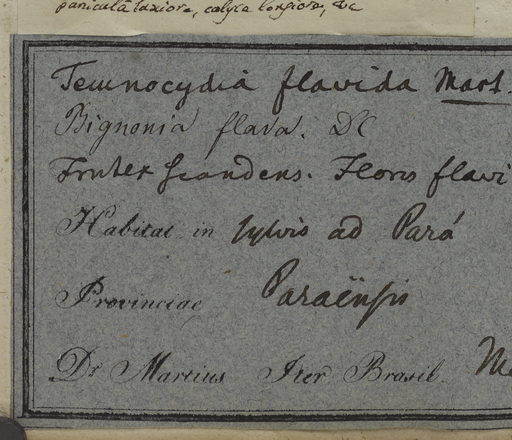 paniculâ laxiore, calyce longiore, &c
Temnocydia flavida Mart.
Bignonia flava. DC
Frutex scandens. Flores flavi
Habitat in sylvis ad Pará
Provinciae Paraënsis
Dr Martius Iter Brasil. Ma